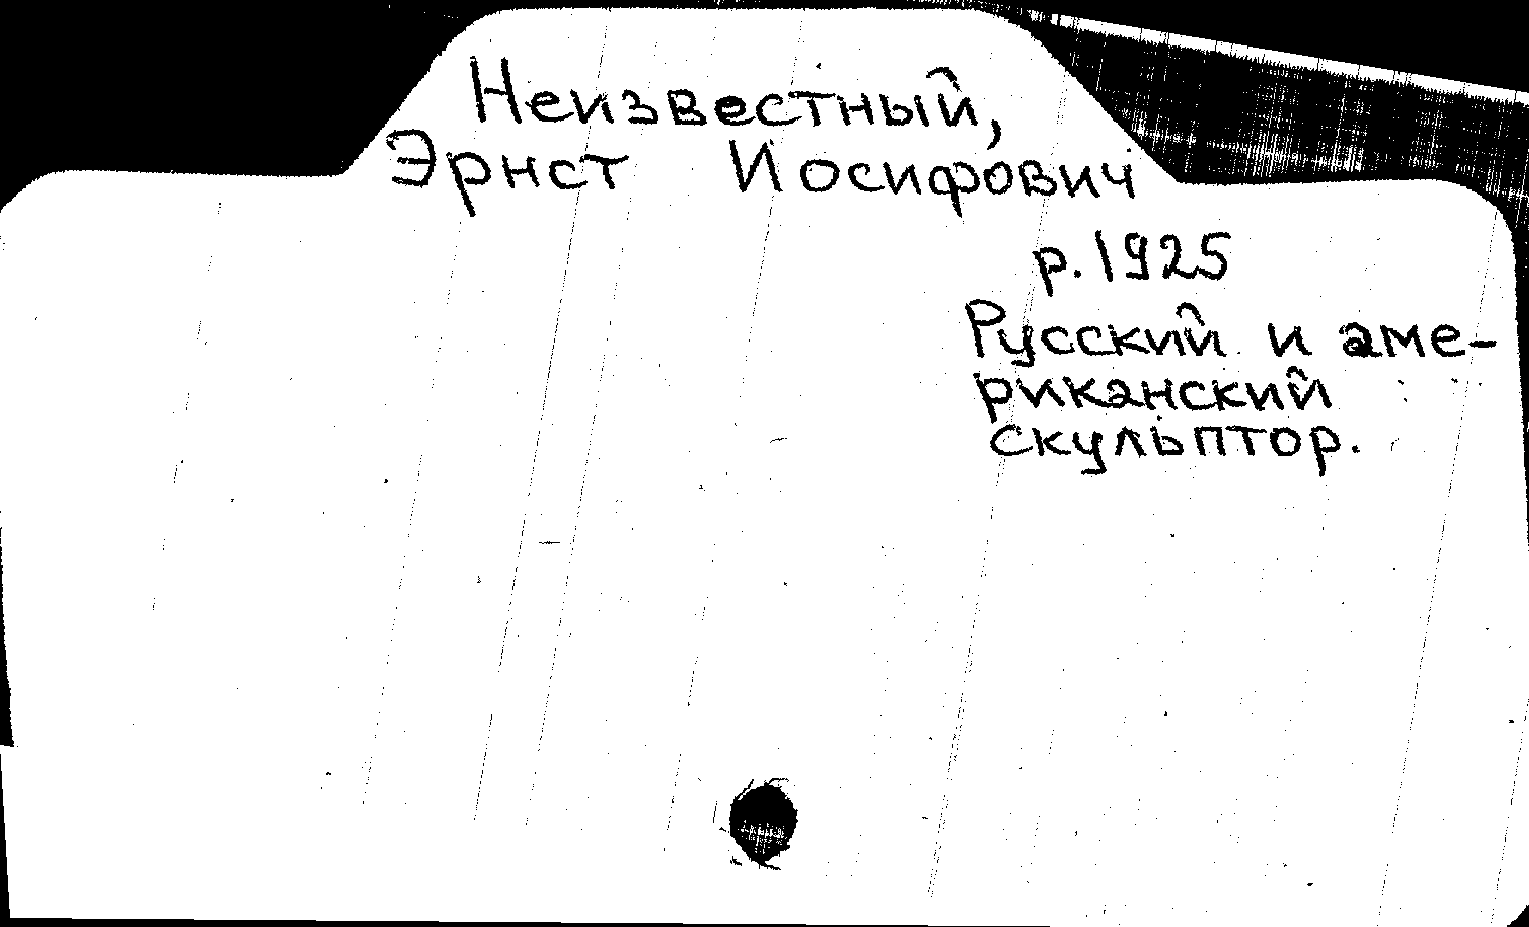 Неизвестный,
Эрнст Иосифович
р. 1925
Русский и аме-
риканский
скульптор.